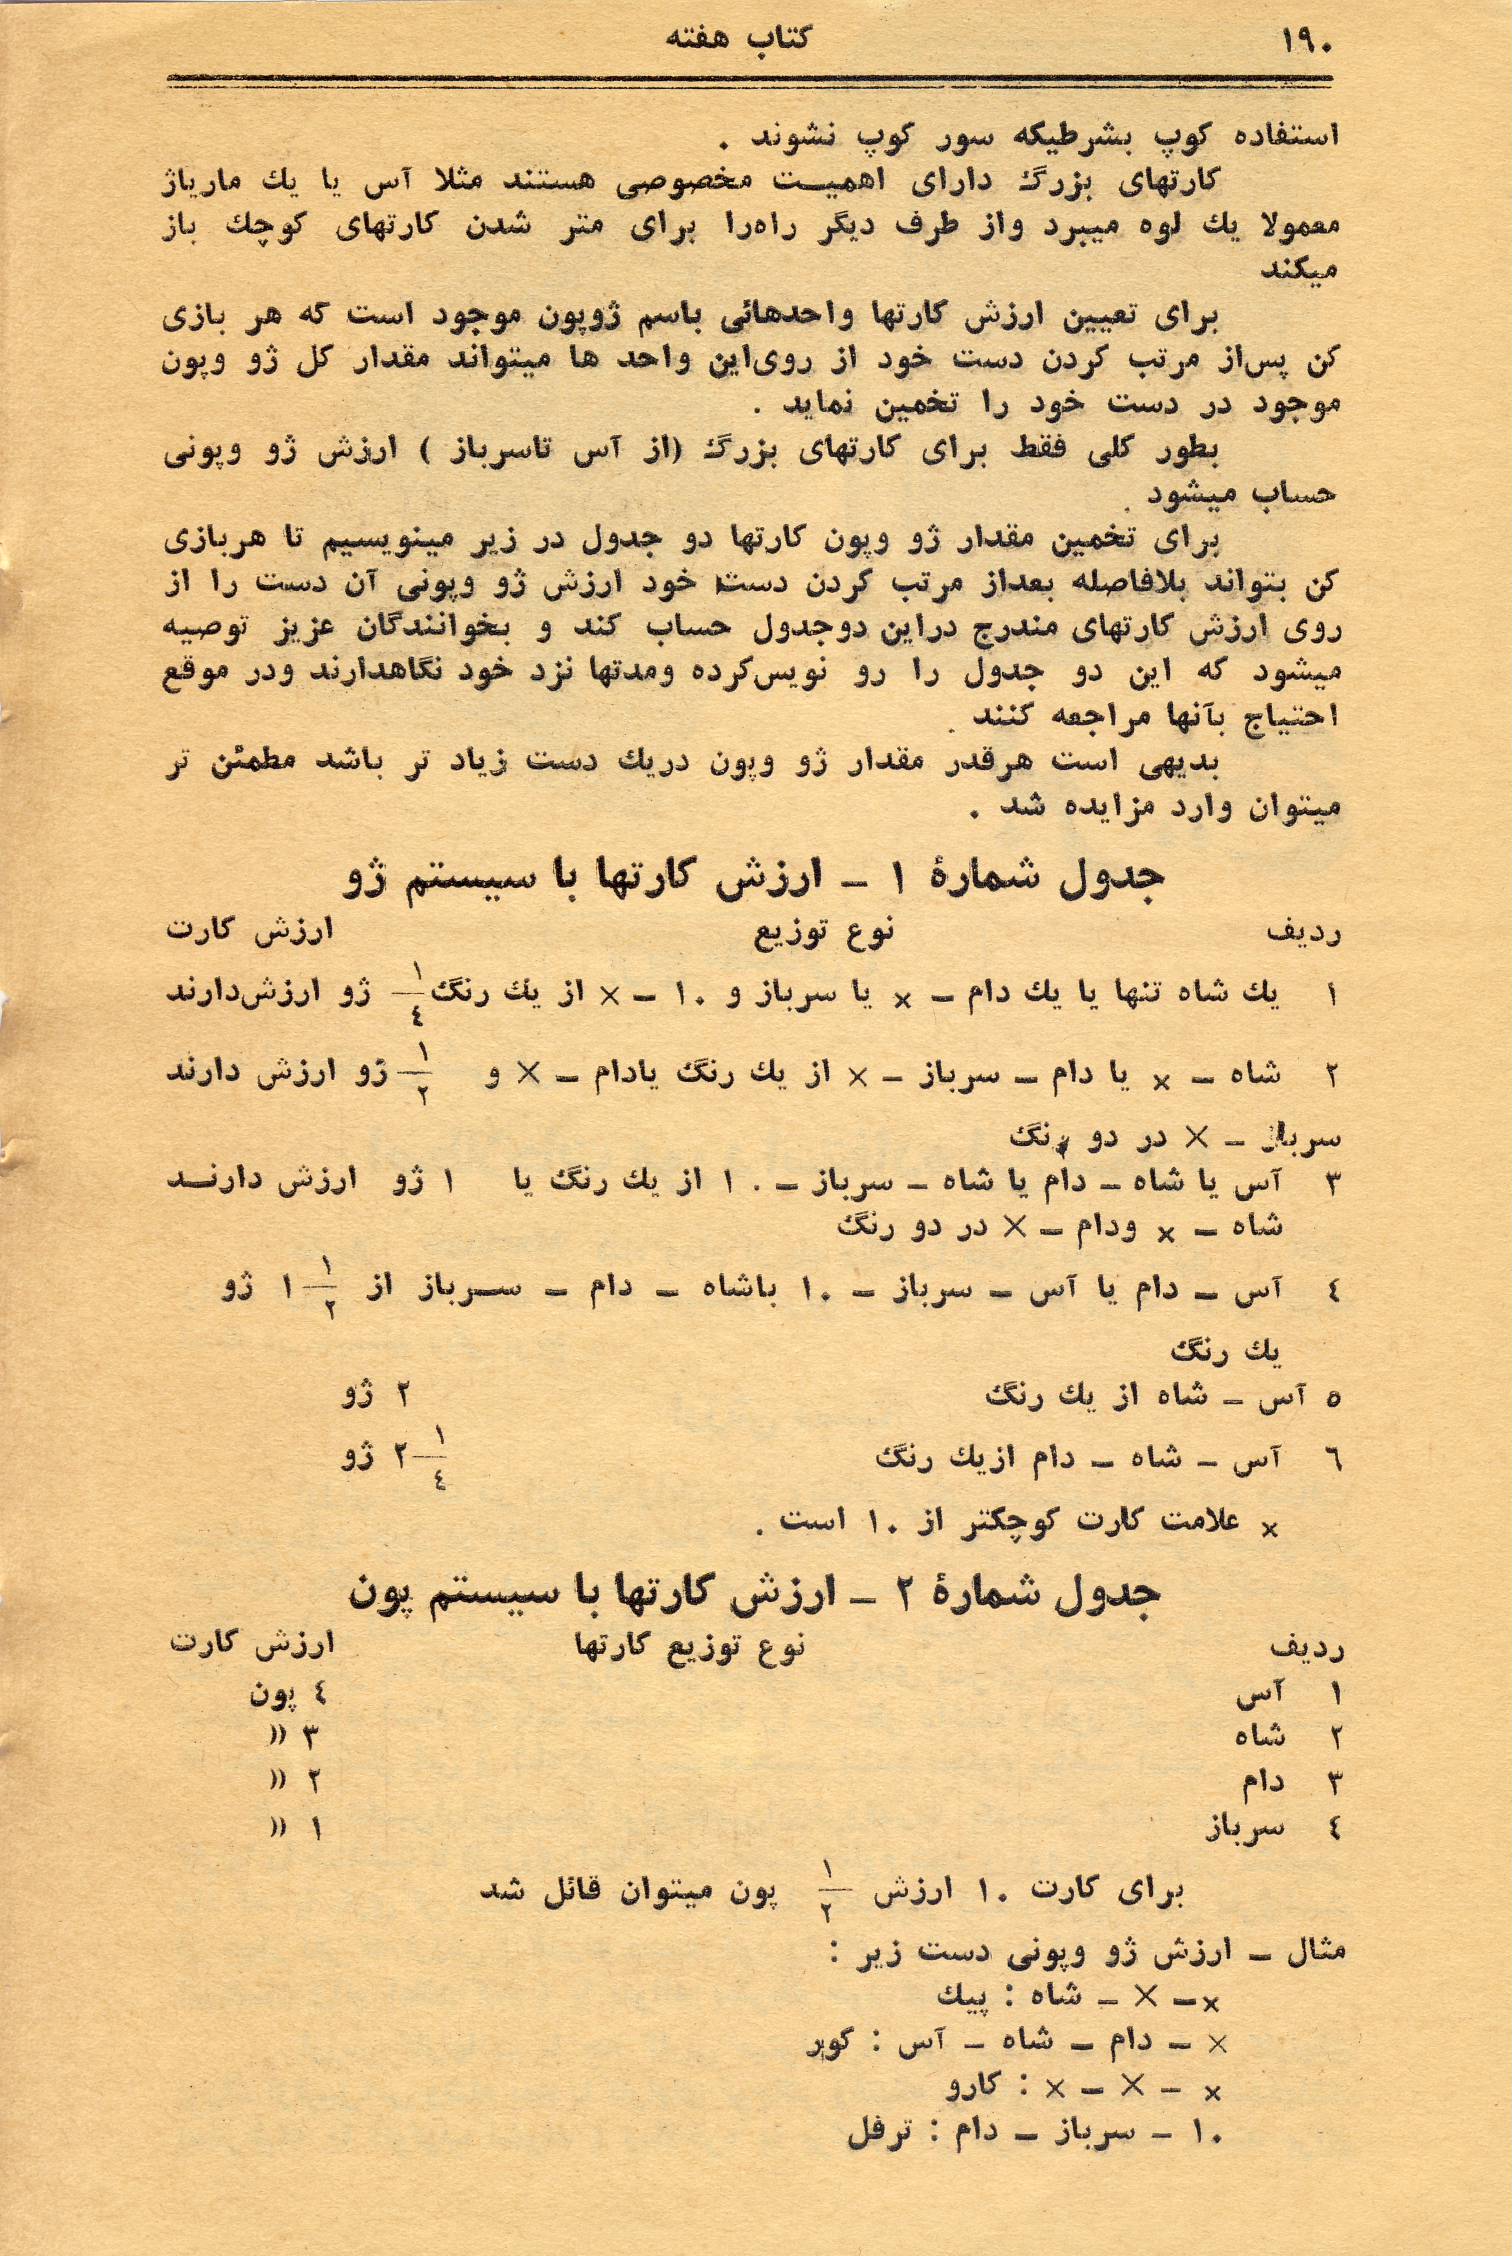 ۱۹۰ کتاب هفته
استفاده کوپ بشرطیکه سور کوپ نشوند .
کارتهای بزرگ دارای اهمیت مخصوصی هستند مثلا آس یا یك ماریاژ
معمولا یك لوه میبرد واز طرف دیگر راه‌را برای متر شدن کارتهای کوچك باز
میکند
برای تعیین ارزش کارتها واحدهائی باسم ژوپون موجود است که هر بازی
کن پس‌از مرتب کردن دست خود از روی‌این واحد ها میتواند مقدار کل ژو وپون
موجود در دست خود را تخمین نماید .
بطور کلی فقط برای کارتهای بزرگ (از آس تاسرباز ) ارزش ژو وپونی
حساب میشود .
برای تخمین مقدار ژو وپون کارتها دو جدول در زیر مینویسیم تا هربازی
کن بتواند بلافاصله بعداز مرتب کردن دست خود ارزش ژو وپونی آن دست را از
روی ارزش کارتهای مندرج دراین دوجدول حساب کند و بخوانندگان عزیز توصیه
میشود که این دو جدول را رو نویس‌کرده ومدتها نزد خود نگاهدارند ودر موقع
احتیاج بآنها مراجعه کنند .
بدیهی است هرقدر مقدار ژو وپون دریك دست زیاد تر باشد مطمئن تر
میتوان وارد مزایده شد .
جدول شمارهٔ ۱ ـ ارزش کارتها با سیستم ژو
ردیف نوع توزیع ارزش کارت
۱ یك شاه تنها یا یك دام ـ × یا سرباز و ۱۰ ـ × از یك رنگ ۱/٤ ژو ارزش‌دارند
۲ شاه ـ × یا دام ـ سرباز ـ × از یك رنگ یادام ـ × و ۱/۲ ژو ارزش دارند
سرباز ـ × در دو رنگ
۳ آس یا شاه ـ دام یا شاه ـ سرباز ـ ۱۰ از یك رنگ یا ۱ ژو ارزش دارنـد
شاه ـ × ودام ـ × در دو رنگ
٤ آس ـ دام یا آس ـ سرباز ـ ۱۰ باشاه ـ دام ـ سـرباز از ۱ ۱/۲ ژو
یك رنگ
٥ آس ـ شاه از یك رنگ ۲ ژو
٦ آس ـ شاه ـ دام ازیك رنگ ۲ ۱/٤ ژو
× علامت کارت کوچکتر از ۱۰ است .
جدول شمارهٔ ۲ ـ ارزش کارتها با سیستم پون
ردیف نوع توزیع کارتها ارزش کارت
۱ آس ٤ پون
۲ شاه ۳ »
۳ دام ۲ »
٤ سرباز ۱ »
برای کارت ۱۰ ارزش ۱/۲ پون میتوان قائل شد
مثال ـ ارزش ژو وپونی دست زیر :
×ـ × ـ شاه : پیك
× ـ دام ـ شاه ـ آس : کور
× ـ × ـ × : کارو
۱۰ ـ سرباز ـ دام : ترفل